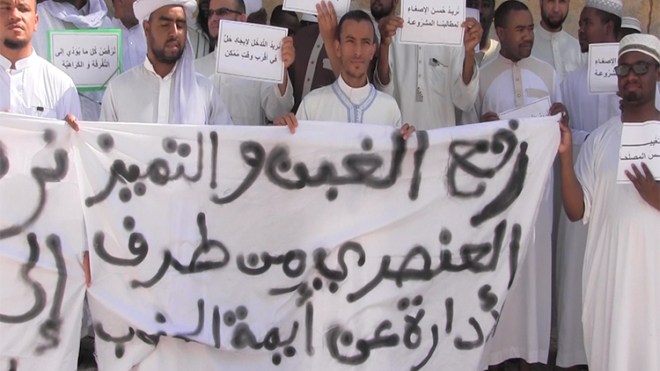 نرفض كل ما يؤدي إلى
التفرقة و الكراهية
نريد التدخل لايجاد حل
في أقرب وقت ممكن
نريد حسن الإصغاء
لمطالبنا المشروعة
حسن الإصغاء
المشروعة
رفع الغبن و التمييز
العنصري من طرف
أدارة عن أيمة
إلى